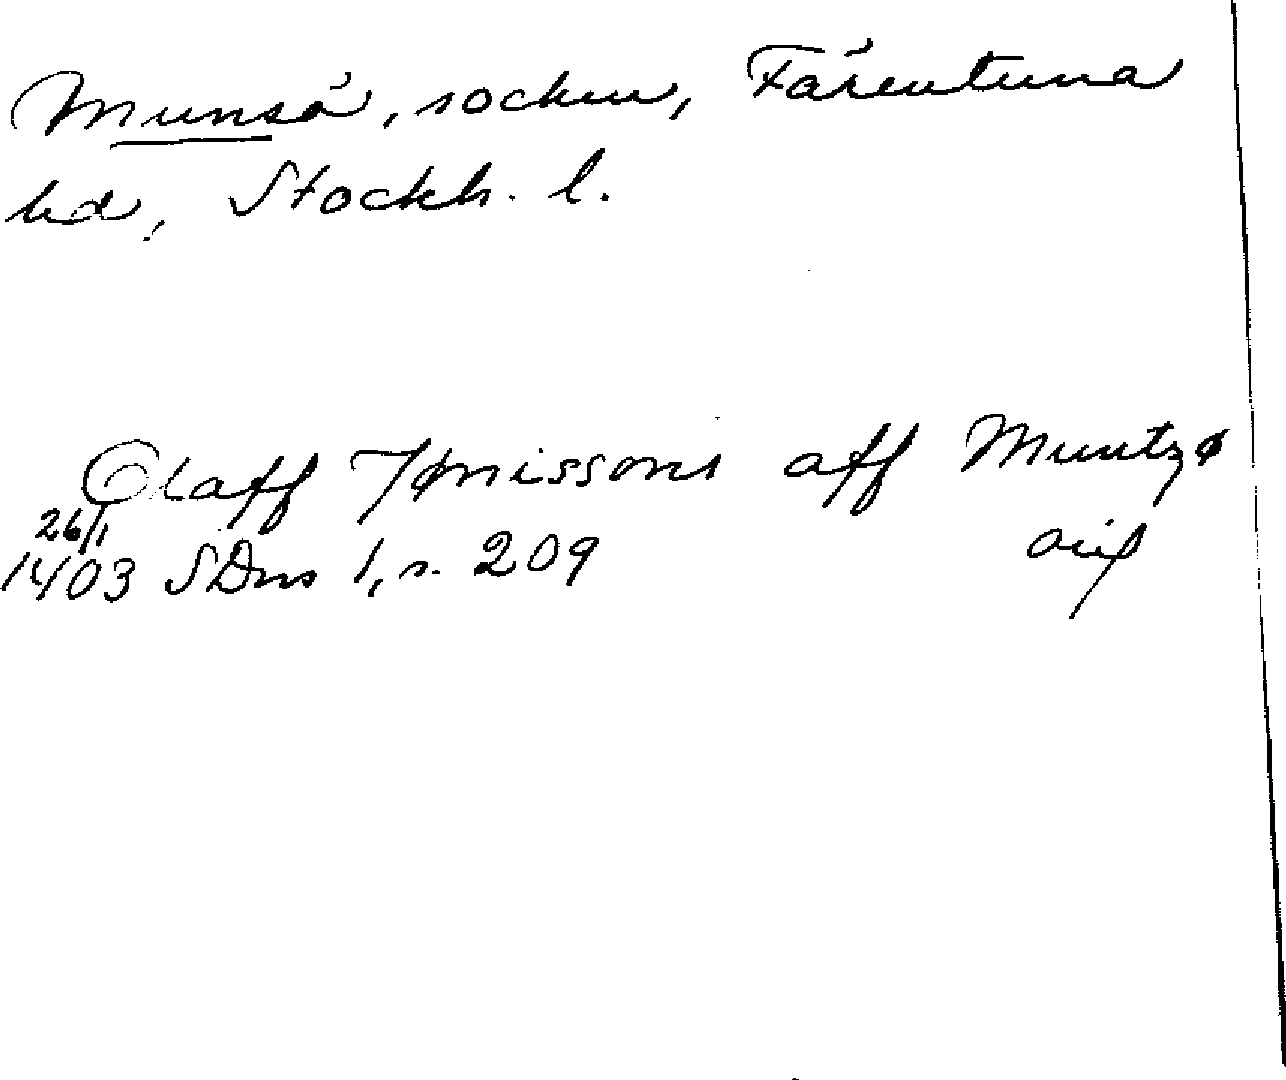 Munsö, socken, Färentuna
hd, Stockh. l.
Olaff Jønissons aff Muntzø
26/1
1403 SDns 1, s. 209